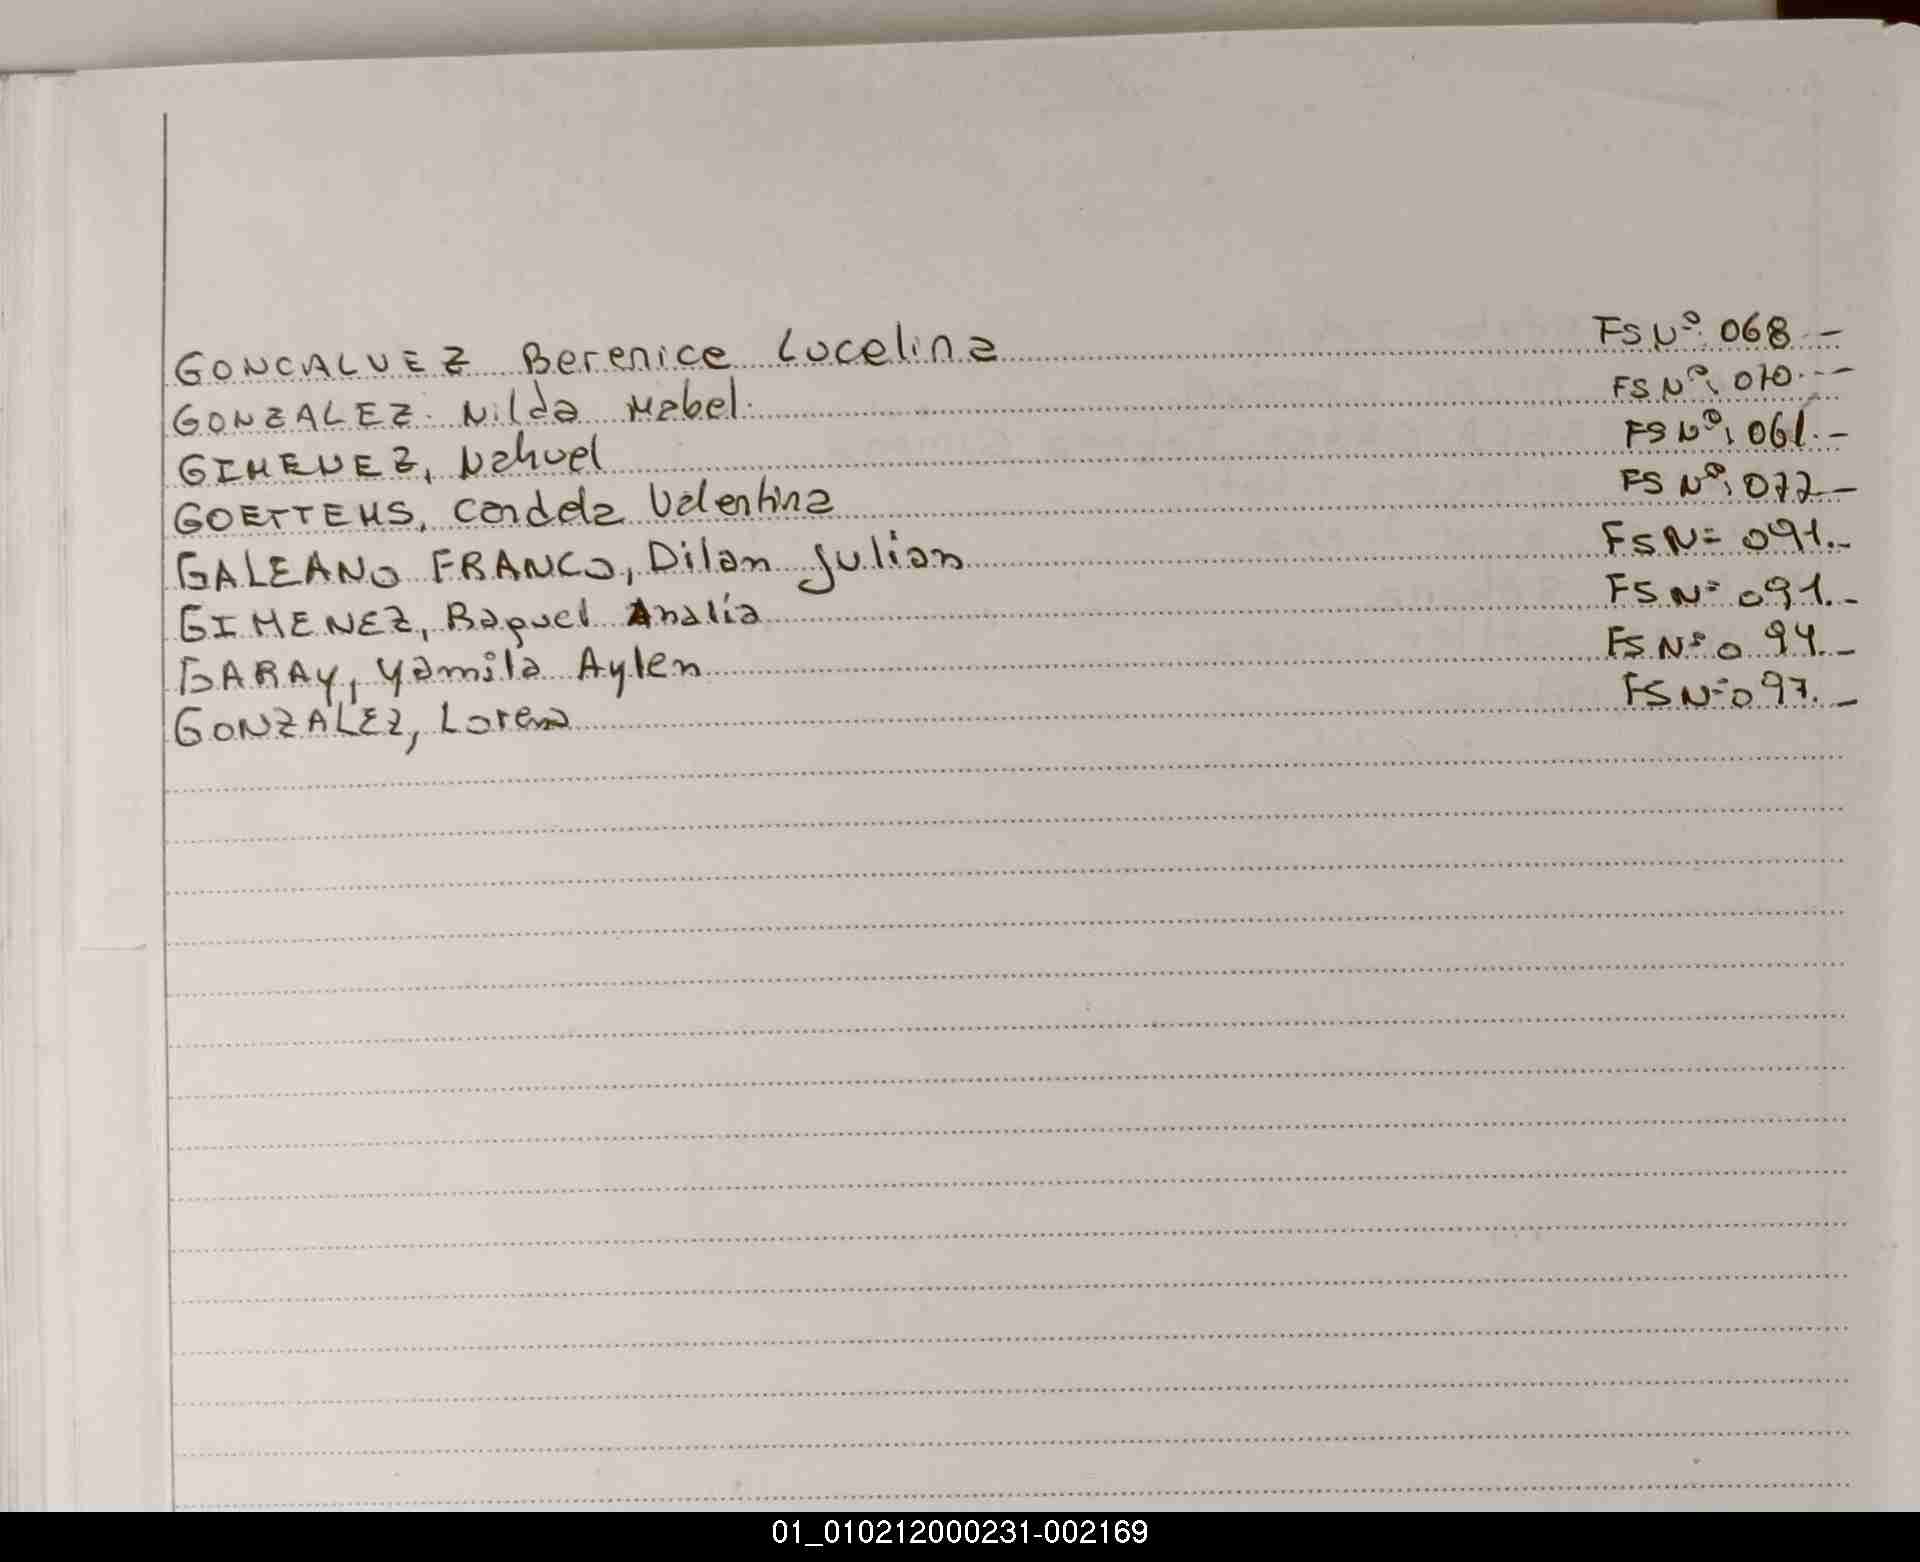 GONCALVEZ Berenice Lucelina FS Nº: 068 -
GONZALEZ. Nilda Mabel. FS Nº: 070. -
GIMENEZ, Nahuel FS Nº: 061. -
GOETTEMS, Candela Valentina FS Nº: 077 -
GALEANO FRANCO, Dilan Julian FS Nº 091. -
GIMENEZ, Raquel Analía FS Nº 091. -
GARAY, Yamila Aylen FS Nº 094. -
GONZALEZ, Lorena FS Nº 097. -
01_010212000231-002169